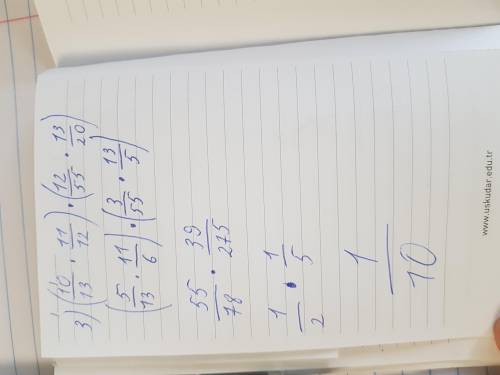 3) (10/13 · 11/12) · (12/55 · 13/20)
(5/13 · 11/6) · (3/55 · 13/5)
55/78 · 39/275
1/2 · 1/5
1/10
www.uskudar.edu.tr